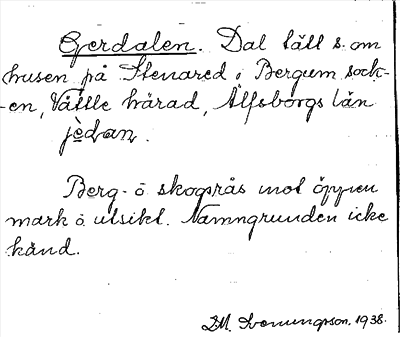 Gerdalen. Dal täll s. om
husen på Stenared i Bergum sock-
en, Vättle härad, Älfsborgs län
jèdan.
Berg- o skogsås mot öppen
mark o utsikt. Namngrunden icke
känd.
D.M. 1938.